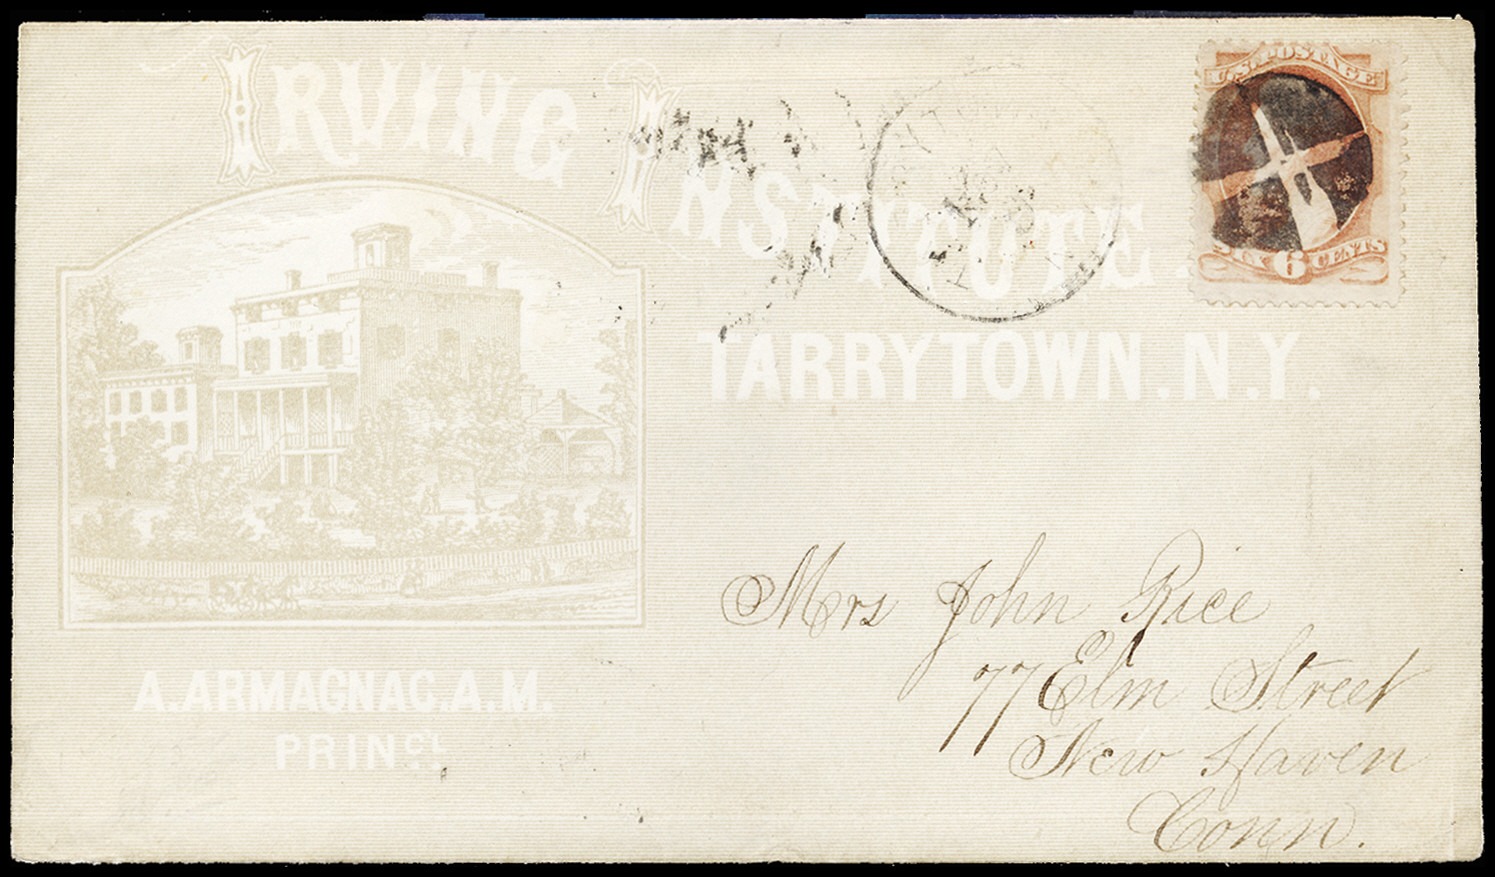 IRVING INSTITUTE
TARRYTOWN. N.Y.
A. ARMAGNAC. A.M.
PRINCL.
U.S. POSTAGE
SIX 6 CENTS
Mrs John Rice
77 Elm Street
New Haven
Conn.